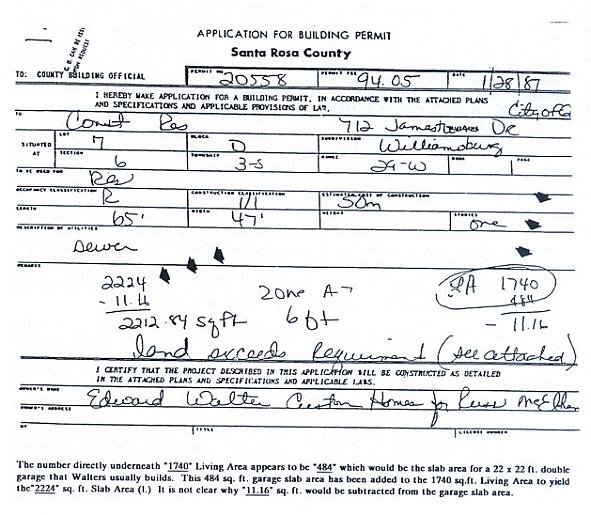 C.O. CAN BE ISSUED
UPON REQUEST
APPLICATION FOR BUILDING PERMIT
Santa Rosa County
TO: COUNTY BUILDING OFFICIAL PERMIT NO 20558 PERMIT FEE 94.05 DATE 1/28/87
I HEREBY MAKE APPLICATION FOR A BUILDING PERMIT, IN ACCORDANCE WITH THE ATTACHED PLANS
AND SPECIFICATIONS AND APPLICABLE PROVISIONS OF LAW. City of
TO Const Res 712 Jamestown DR
SITUATED AT LOT 7 BLOCK D SUBDIVISION Williamsburg
SECTION 6 TOWNSHIP 3-S RANGE 29-W BOOK PAGE
TO BE USED FOR Res
OCCUPANCY CLASSIFICATION R CONSTRUCTION CLASSIFICATION ESTIMATED COST OF CONSTRUCTION 50m
LENGTH 65' WIDTH 47' HEIGHT STORIES one
DESCRIPTION OF UTILITIES
Sewer
REMARKS
2224 Zone A-7 LA 1740
- 11.16 484
2212.84 sq ft 6 ft - 11.16
land exceeds requirment (see attached)
I CERTIFY THAT THE PROJECT DESCRIBED IN THIS APPLICATION WILL BE CONSTRUCTED AS DETAILED
IN THE ATTACHED PLANS AND SPECIFICATIONS AND APPLICABLE LAWS.
OWNER'S NAME Edward Walter Custom Homes for Russ
OWNER'S ADDRESS
BY TITLE LICENSE NUMBER
The number directly underneath "1740" Living Area appears to be "484" which would be the slab area for a 22 x 22 ft. double
garage that Walters usually builds. This 484 sq. ft. garage slab area has been added to the 1740 sq.ft. Living Area to yield
the"2224" sq. ft. Slab Area (I.) It is not clear why "11.16" sq. ft. would be subtracted from the garage slab area.